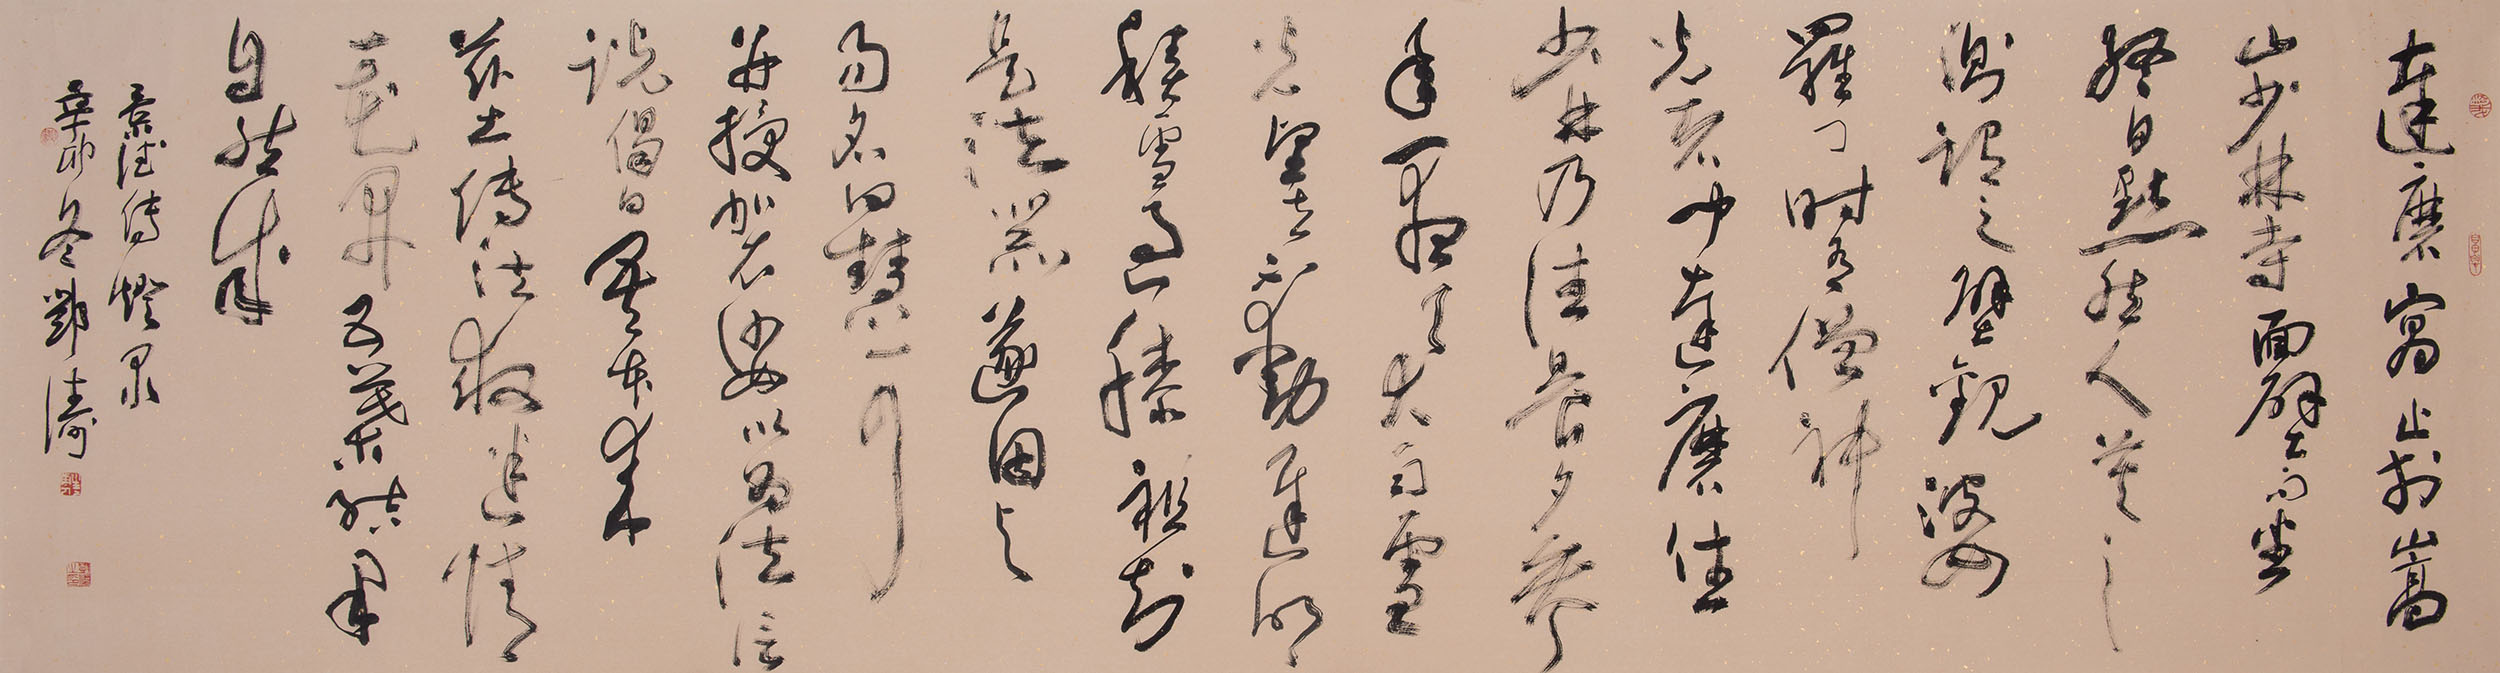 達磨寓止於嵩
山少林寺面壁而坐
終日默然人莫之
測謂之壁觀婆
羅門時有僧神
光聞達磨住
少林乃往晨夕參
年一夜天大雨雪
光堅立不動遲明
積雪過膝祖知
是法器遂因與
易名曰慧可
并授加沙以為法信
說偈曰吾本來
茲土傳法救迷情
一花開五葉結果
自然成
景德傳燈錄
辛卯冬鄧濤